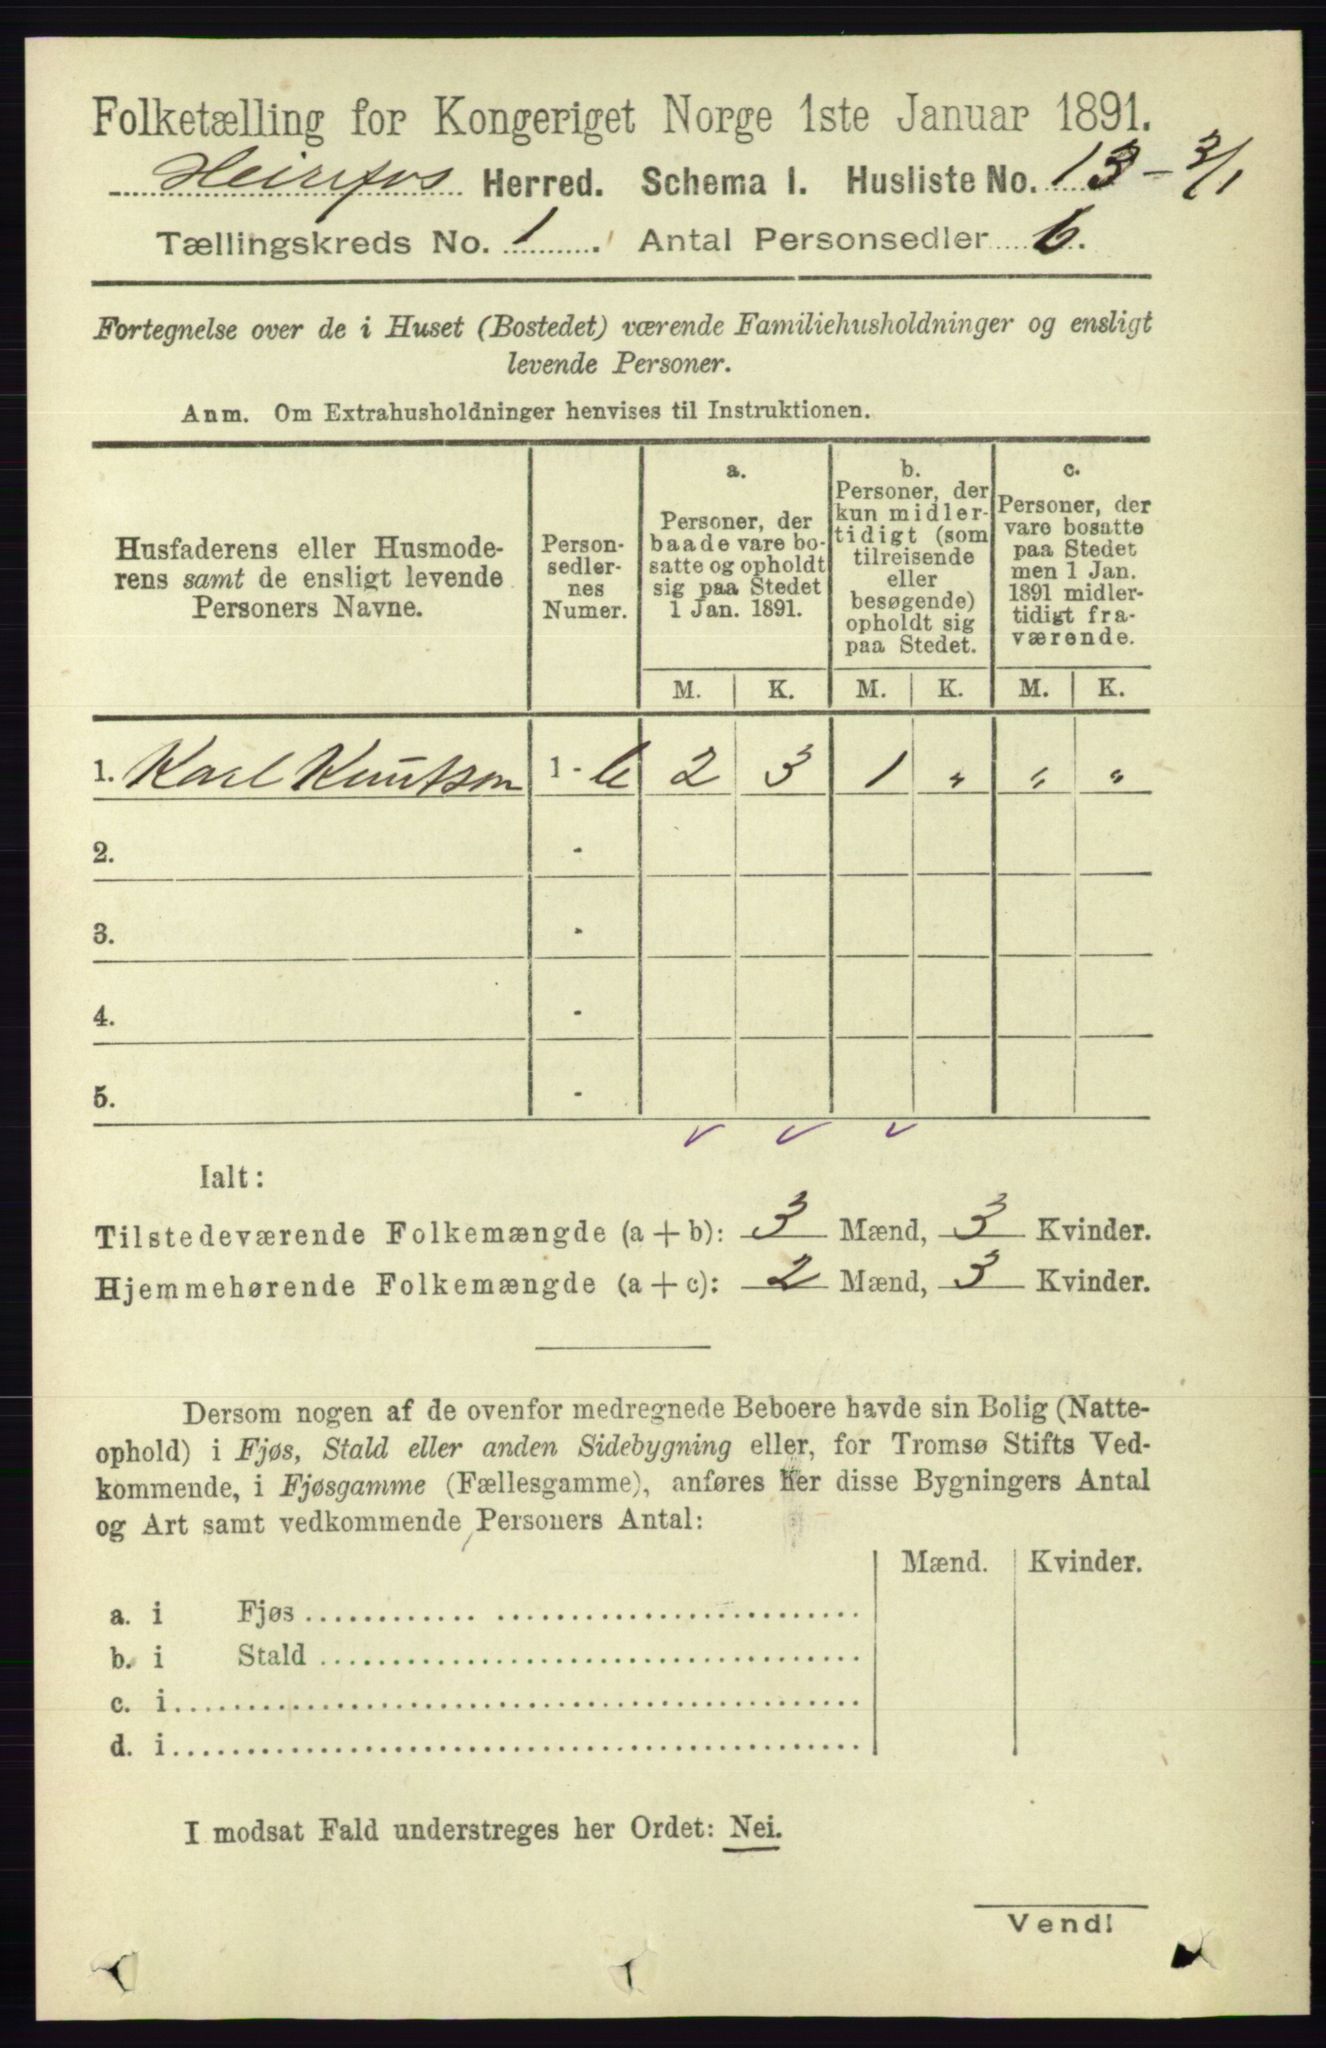 Folketælling for Kongeriget Norge 1ste Januar 1891.
Herred. Schema I. Husliste No. 13 - 3/1
Tællingskreds No. 1. Antal Personsedler 6.
Fortegnelse over de i Huset (Bostedet) værende Familiehusholdninger og ensligt
levende Personer.
Anm. Om Extrahusholdninger henvises til Instruktionen.
Husfaderens eller Husmoderens samt de ensligt levende Personers Navne.
Personsedlernes Numer.
a.
Personer, der
baade vare bo-
satte og opholdt
sig paa Stedet
1 Jan. 1891.
b.
Personer, der
kun midler-
tidigt (som
tilreisende
eller
besøgende)
opholdt sig
paa Stedet.
c.
Personer, der
vare bosatte
paa Stedet
men 1 Jan.
1891 midler-
tidigt fra-
værende.
M. K. M. K. M. K.
1. Karl Knutson 1 - 6 2 3 1 " " "
2. -
3. -
4. -
5. -
Ialt:
Tilstedeværende Folkemængde (a + b): 3 Mænd, 3 Kvinder.
Hjemmehørende Folkemængde (a + c): 2 Mænd, 3 Kvinder.
Dersom nogen af de ovenfor medregnede Beboere havde sin Bolig (Natte-
ophold) i Fjøs, Stald eller anden Sidebygning eller, for Tromsø Stifts Ved-
kommende, i Fjøsgamme (Fællesgamme), anføres her disse Bygningers Antal
og Art samt vedkommende Personers Antal:
Mænd. Kvinder.
a. i Fjøs
b. i Stald
c. i
d. i
I modsat Fald understreges her Ordet: Nei.
Vend!